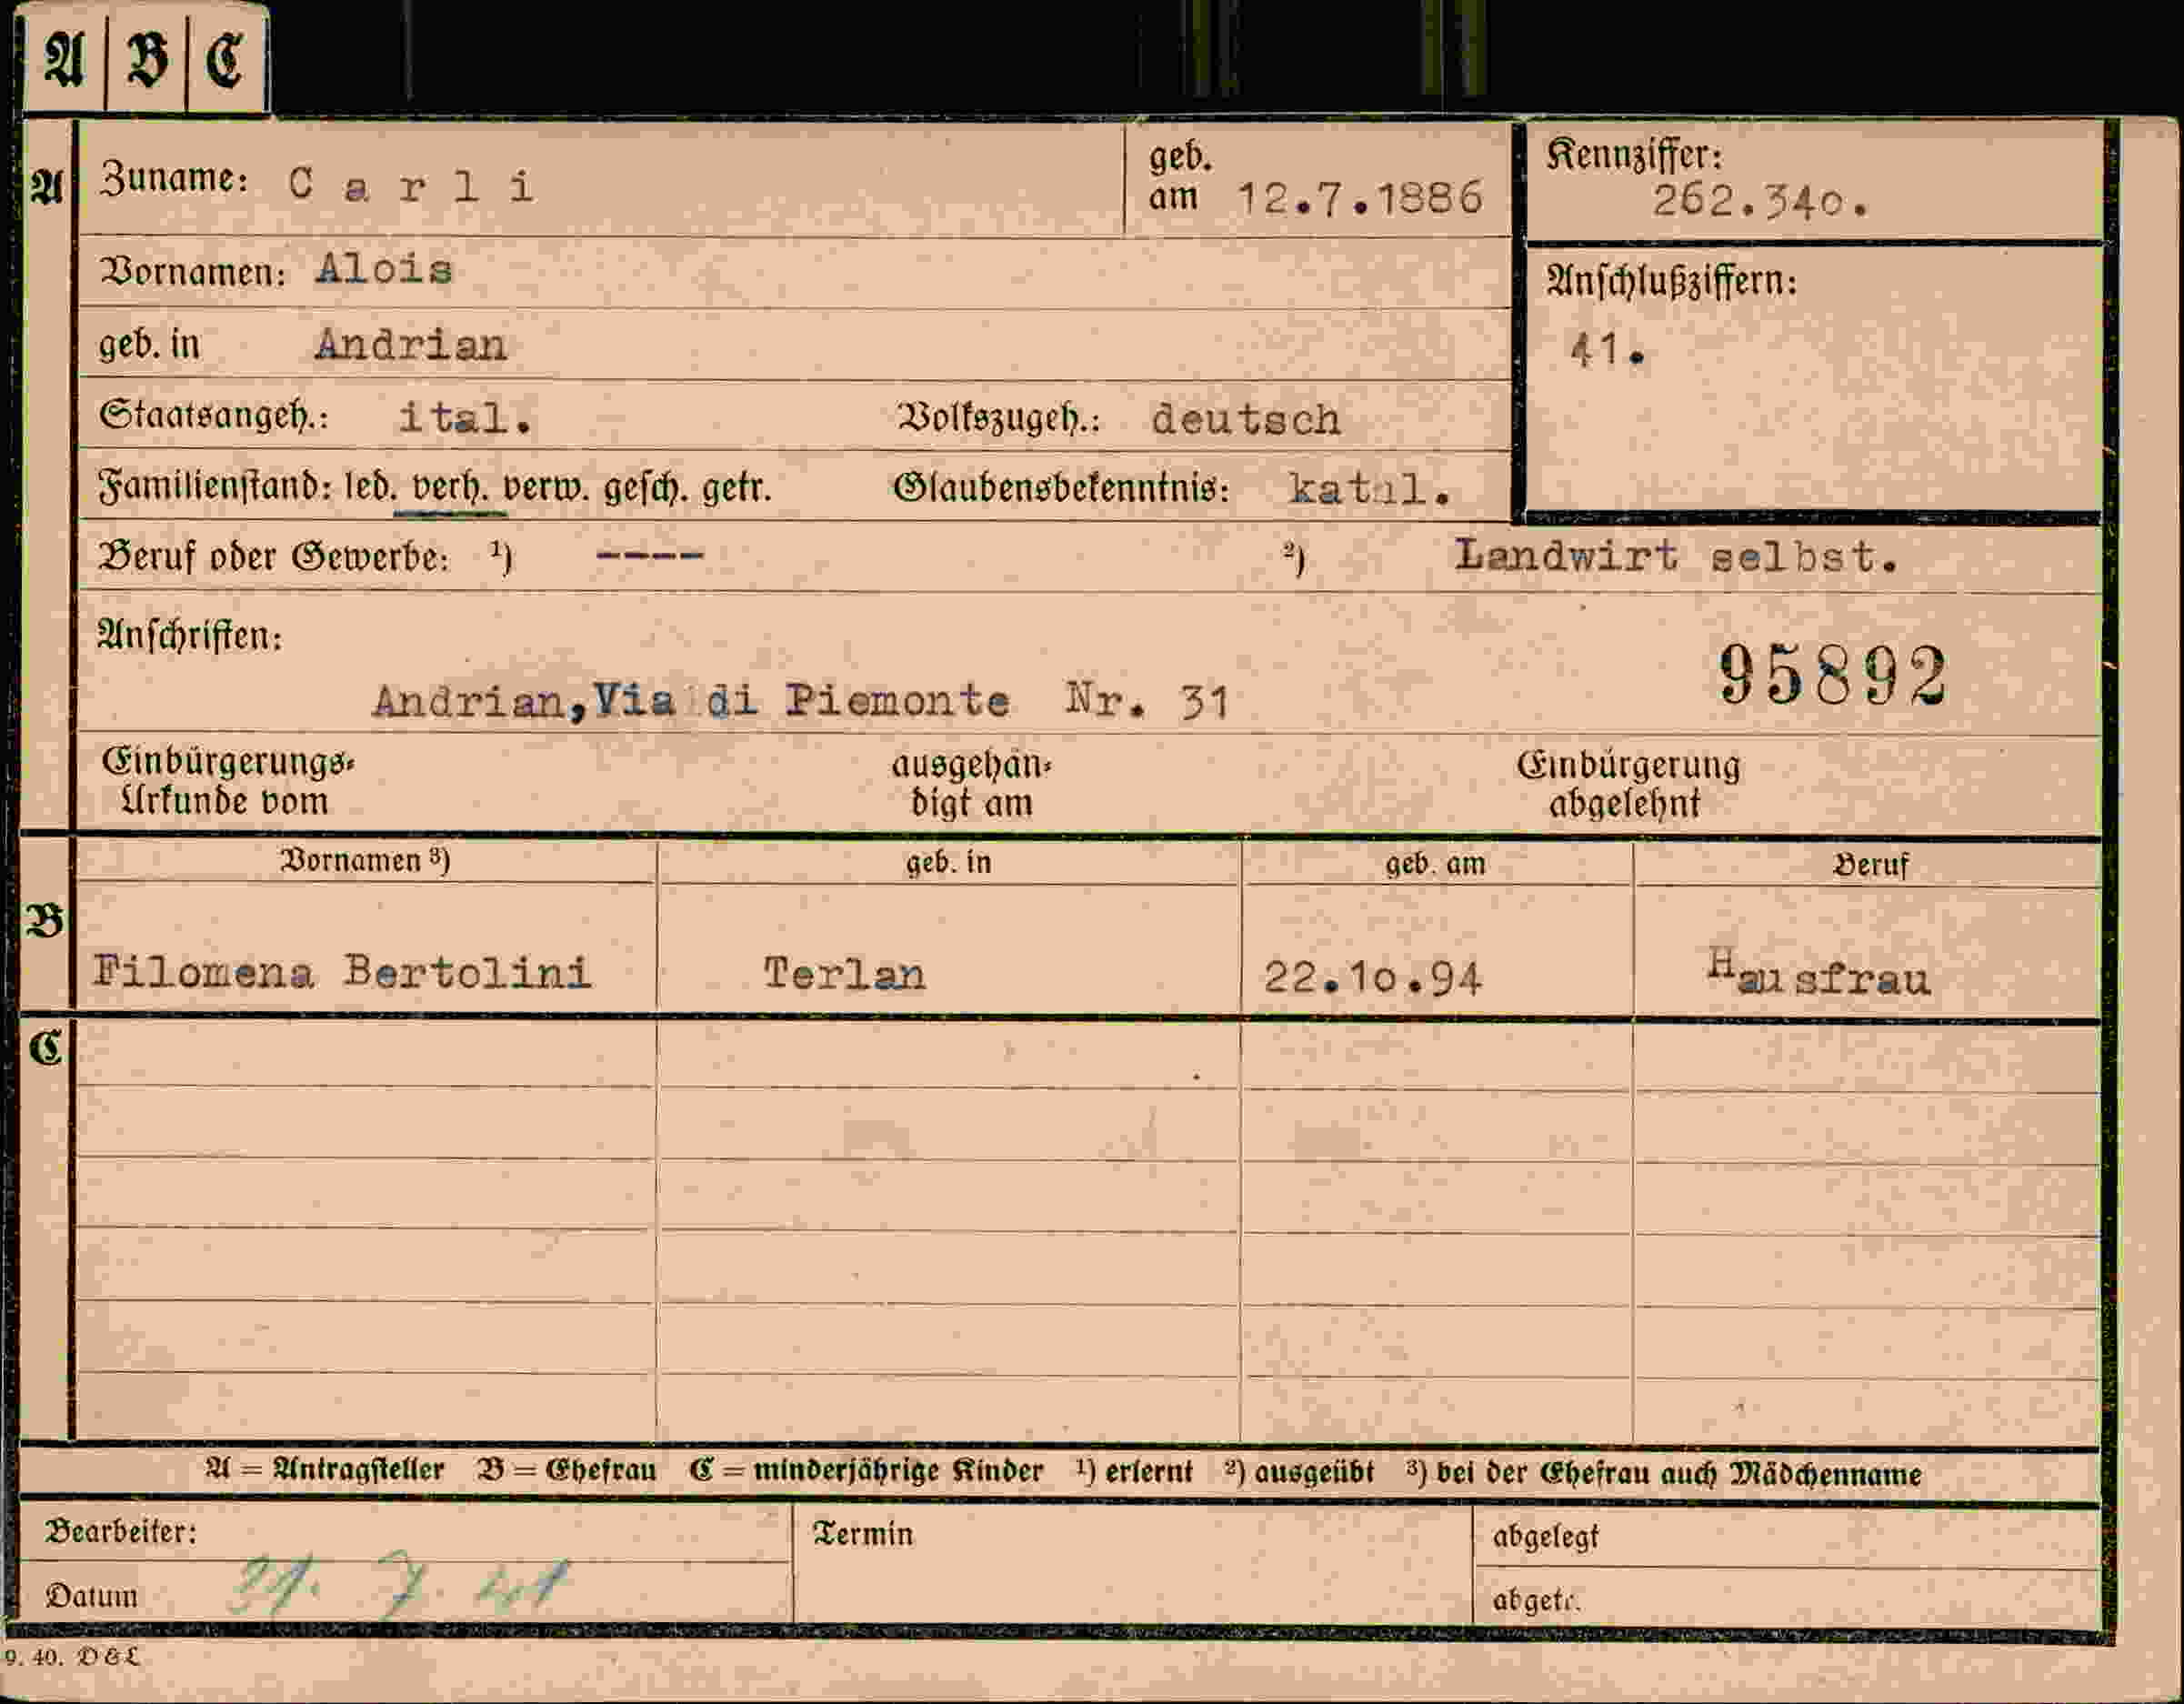 A B C
A Zuname: Carli geb. am 12.7.1886 Kennziffer: 262.340.
Vornamen: Alois Anschlußziffern:
geb. in Andrian 41.
Staatsangeh.: ital. Volkszugeh.: deutsch
Familienstand: led. verh. verw. gesch. getr. Glaubensbekenntnis:
Beruf oder Gewerbe: ¹) ---- ²) Landwirt selbst.
Anschriften: 95892
Andrian,Via di Piemonte Nr. 31
Einbürgerungs- ausgehän- Einbürgerung
Urkunde vom digt am abgelehnt
Vornamen ³) geb. in geb. am Beruf
B
Filomena Bertolini Terlan 22.10.94 Hausfrau
C
A = Antragsteller B = Ehefrau C = minderjährige Kinder ¹) erlernt ²) ausgeübt ³) bei der Ehefrau auch Mädchenname
Bearbeiter: Termin abgelegt
Datum 7. 41 abgetr.
9. 40. D&L